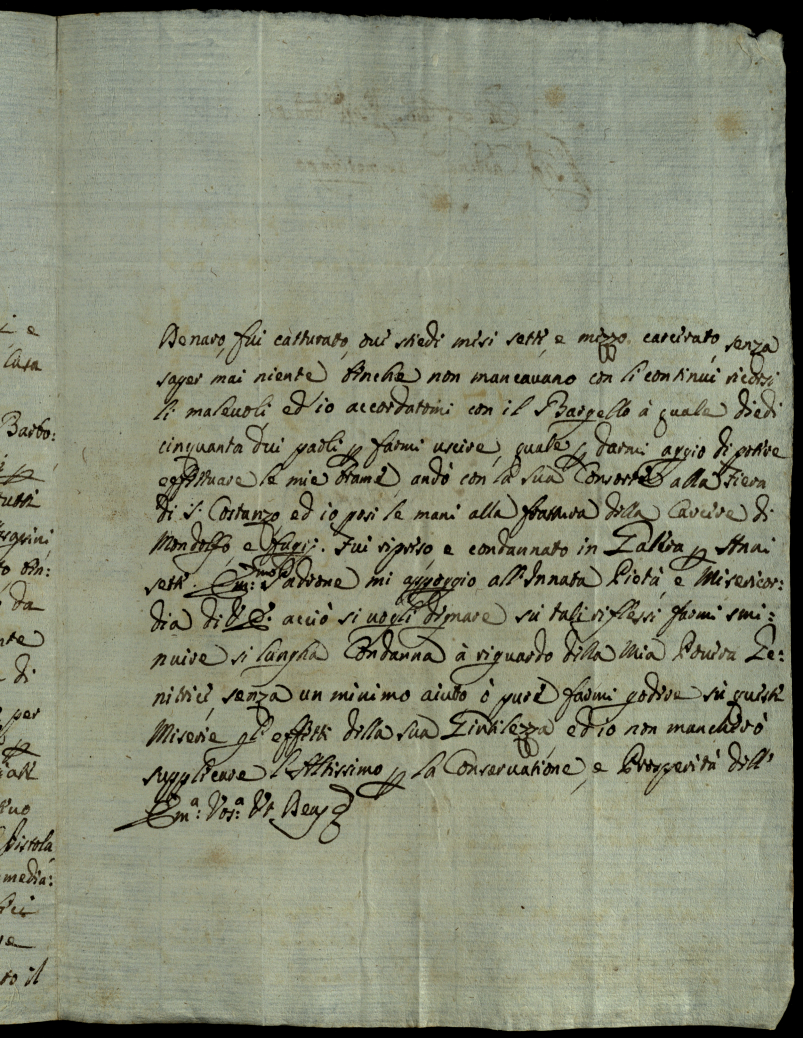 Denaro, fui catturato, ove stiedi mesi sette, e mezzo carcerato, senza
saper mai niente, benche non mancavano con li continui ricorsi
li malevoli, ed io accordatomi con il Bargello à quale diedi
cinquanta due paoli p farmi uscire, quale p darmi aggio di potere
effettuare le mie brame andò con la sua Consorte alla Fiera
di S. Costanzo, ed io posi le mani alla frattura della Carcere di
Mondolfo e fugij. Fui ripreso e condannato in Galera p Anni
sette. Em:mo Padrone mi appoggio all'Innata Pietà, e Misericor:
dia di V. E. acciò si vogli degnare su tali riflessi farmi smi:
nuire si lungha Condanna à riguardo della Mia Povera Ge:
nitrice, senza un minimo aiuto ò pure farmi godere su queste
Miserie gl'effetti della sua Gentilezza, ed io non mancherò
supplicare l'Altissimo p la Conservatione, e Prosperità dell'
Em:a Vos:a Ut Deus
i e
Barbo:
p
tutti
da
nte
di
per
p
Pistola
media:
to il